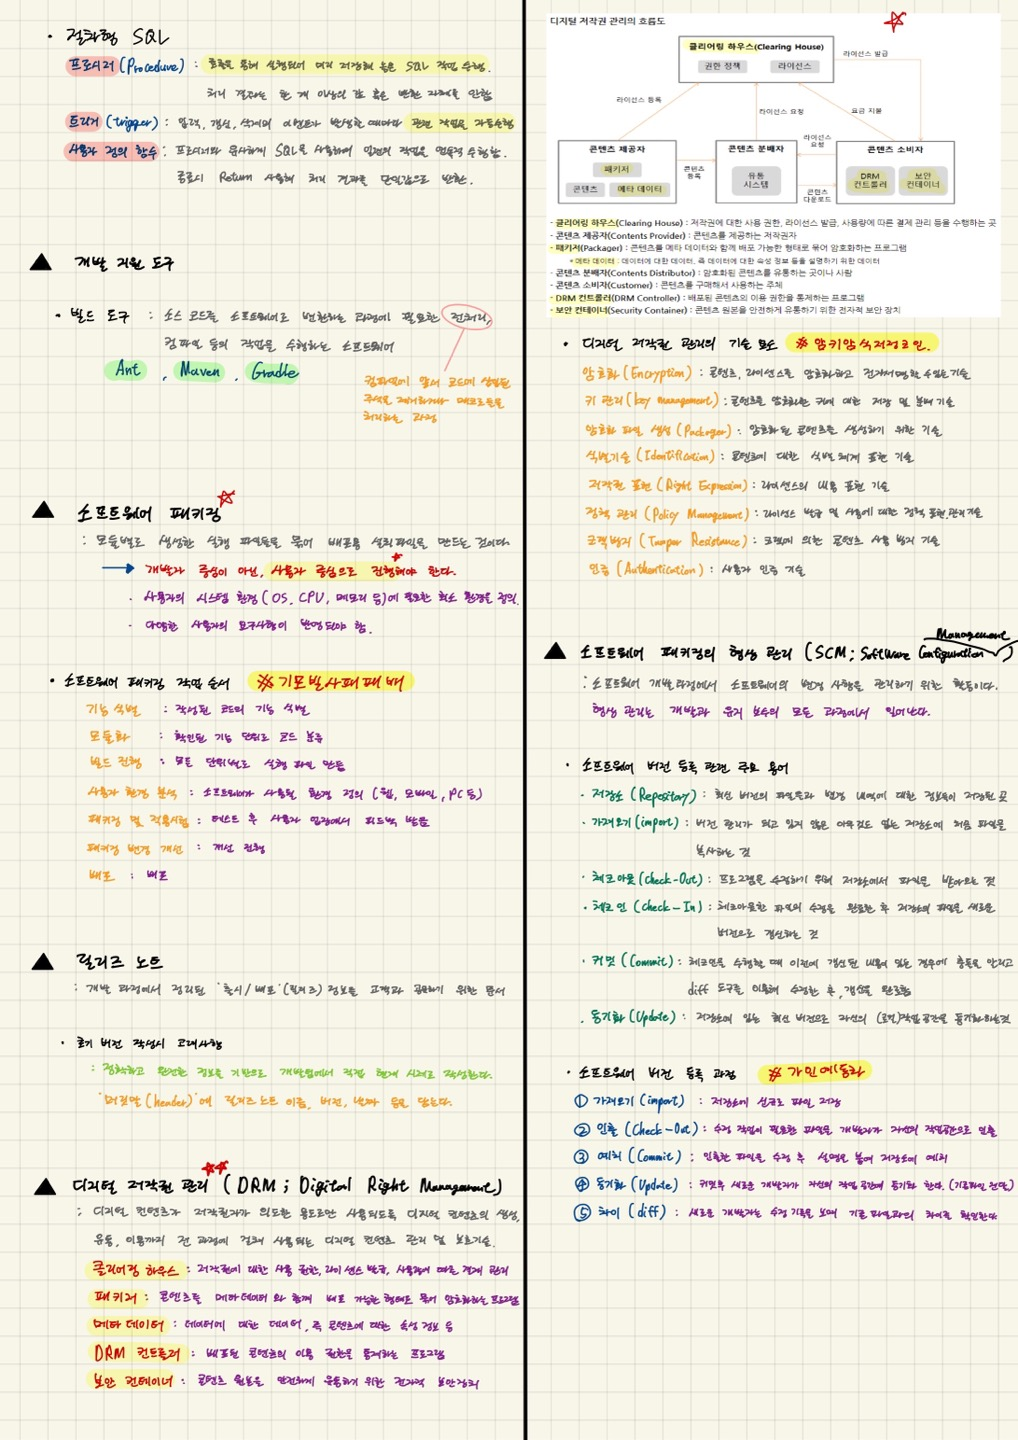 · 절차형 SQL
프로시저 (Procedure) : 호출을 통해 실행되어 미리 저장해 놓은 SQL 작업 수행.
처리 결과는 한 개 이상의 값 혹은 반환 자체를 안함
트리거 (trigger) : 입력, 갱신, 삭제의 이벤트가 발생할 때마다 관련 작업을 자동수행
사용자 정의 함수 : 프로시저와 유사하게 SQL을 사용하여 일련의 작업을 연속적 수행함.
종료시 Return 사용해 처리 결과를 단일값으로 반환.
▲ 개발 지원 도구
· 빌드 도구 : 소스 코드를 소프트웨어로 변환하는 과정에 필요한 전처리,
컴파일 등의 작업을 수행하는 소프트웨어
Ant , Maven , Gradle
컴파일에 앞서 코드에 삽입된
주석을 제거하거나 매크로들을
처리하는 과정
▲ 소프트웨어 패키징
: 모듈별로 생성한 실행 파일들을 묶어 배포용 설치파일을 만드는 것이다.
→ 개발자 중심이 아닌, 사용자 중심으로 진행해야 한다.
· 사용자의 시스템 환경(OS, CPU, 메모리 등)에 필요한 최소 환경을 정의.
· 다양한 사용자의 요구사항이 반영되어야 함.
· 소프트웨어 패키징 작업 순서 ※ 기모빌사패패배
기능 식별 : 작성된 코드의 기능 식별
모듈화 : 확인된 기능 단위로 코드 분류
빌드 진행 : 모듈 단위별로 실행 파일 만듦
사용자 환경 분석 : 소프트웨어가 사용될 환경 정의 (웹, 모바일, PC 등)
패키징 및 적용시험 : 테스트 후 사용자 입장에서 피드백 받음
패키징 변경 개선 : 개선 진행
배포 : 배포
▲ 릴리즈 노트
: 개발 과정에서 정리된 '출시/배포'(릴리즈) 정보를 고객과 공유하기 위한 문서
· 초기 버전 작성시 고려사항
: 정확하고 완전한 정보를 기반으로 개발팀에서 직접 현재 시제로 작성한다.
'머릿말(header)'에 릴리즈 노트 이름, 버전, 날짜 등을 담는다.
▲ 디지털 저작권 관리 (DRM ; Digital Right Management)
: 디지털 컨텐츠가 저작권자가 의도한 용도로만 사용되도록 디지털 컨텐츠의 생성,
유통, 이용까지 전 과정에 걸쳐 사용되는 디지털 컨텐츠 관리 및 보호기술.
클리어링 하우스 : 저작권에 대한 사용 권한, 라이센스 발급, 사용량에 따른 결제 관리
패키저 : 콘텐츠를 메타데이터와 함께 배포 가능한 형태로 묶어 암호화하는 프로그램
메타 데이터 : 데이터에 대한 데이터, 즉 콘텐츠에 대한 속성 정보 등
DRM 컨트롤러 : 배포된 콘텐츠의 이용 권한을 통제하는 프로그램
보안 컨테이너 : 콘텐츠 원본을 안전하게 유통하기 위한 전자적 보안장치
디지털 저작권 관리의 흐름도
클리어링 하우스(Clearing House)
권한 정책 라이선스
라이선스 발급
라이선스 등록
라이선스 요청
요금 지불
라이선스
요청
콘텐츠 제공자
패키저
콘텐츠 메타 데이터
콘텐츠
등록
콘텐츠 분배자
유통
시스템
콘텐츠
다운로드
콘텐츠 소비자
DRM
컨트롤러
보안
컨테이너
- 클리어링 하우스(Clearing House) : 저작권에 대한 사용 권한, 라이선스 발급, 사용량에 따른 결제 관리 등을 수행하는 곳
- 콘텐츠 제공자(Contents Provider) : 콘텐츠를 제공하는 저작권자
- 패키저(Packager) : 콘텐츠를 메타 데이터와 함께 배포 가능한 형태로 묶어 암호화하는 프로그램
* 메타 데이터 : 데이터에 대한 데이터, 즉 데이터에 대한 속성 정보 등을 설명하기 위한 데이터
- 콘텐츠 분배자(Contents Distributor) : 암호화된 콘텐츠를 유통하는 곳이나 사람
- 콘텐츠 소비자(Customer) : 콘텐츠를 구매해서 사용하는 주체
- DRM 컨트롤러(DRM Controller) : 배포된 콘텐츠의 이용 권한을 통제하는 프로그램
- 보안 컨테이너(Security Container) : 콘텐츠 원본을 안전하게 유통하기 위한 전자적 보안 장치
· 디지털 저작권 관리의 기술 요소 ※ 암키암식저정크인.
암호화 (Encryption) : 콘텐츠, 라이선스를 암호화하고 전자서명할 수 있는 기술
키 관리 (key management) : 콘텐츠를 암호화한 키에 대한 저장 및 분배 기술
암호화 파일 생성 (Packager) : 암호화된 콘텐츠를 생성하기 위한 기술
식별기술 (Identification) : 콘텐츠에 대한 식별 체계 표현 기술
저작권 표현 (Right Expression) : 라이선스의 내용 표현 기술
정책 관리 (Policy Management) : 라이선스 발급 및 사용에 대한 정책 표현, 관리기술
크랙방지 (Tamper Resistance) : 크랙에 의한 콘텐츠 사용 방지 기술
인증 (Authentication) : 사용자 인증 기술
▲ 소프트웨어 패키징의 형상 관리 (SCM ; Software Configuration Management)
: 소프트웨어 개발과정에서 소프트웨어의 변경 사항을 관리하기 위한 활동이다.
형상 관리는 개발과 유지 보수의 모든 과정에서 일어난다.
· 소프트웨어 버전 등록 관련 주요 용어
· 저장소 (Repository) : 최신 버전의 파일들과 변경 내역에 대한 정보들이 저장된 곳
· 가져오기 (import) : 버전 관리가 되고 있지 않은 아무것도 없는 저장소에 처음 파일을
복사하는 것
· 체크아웃 (Check-Out) : 프로그램을 수정하기 위해 저장소에서 파일을 받아오는 것
· 체크인 (Check-In) : 체크아웃한 파일의 수정을 완료한 후 저장소의 파일을 새로운
버전으로 갱신하는 것
· 커밋 (Commit) : 체크인을 수행할 때 이전에 갱신된 내용이 있는 경우에 충돌을 알리고
diff 도구를 이용해 수정한 후, 갱신을 완료함
· 동기화 (Update) : 저장소에 있는 최신 버전으로 자신의 (로컬)작업공간을 동기화하는것
· 소프트웨어 버전 등록 과정 ※ 가인예동차
① 가져오기 (import) : 저장소에 신규로 파일 저장
② 인출 (Check-Out) : 수정 작업이 필요한 파일을 개발자가 자신의 작업공간으로 인출
③ 예치 (Commit) : 인출한 파일을 수정 후 설명을 붙여 저장소에 예치
④ 동기화 (Update) : 커밋후 새로운 개발자가 자신의 작업 공간에 동기화 한다. (기존파일 전달)
⑤ 차이 (diff) : 새로운 개발자는 수정 기록을 보며 기존 파일과의 차이를 확인한다